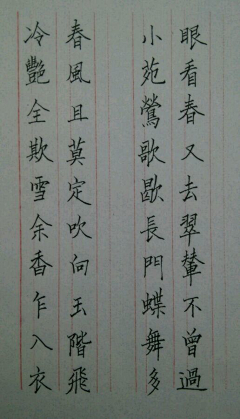 眼看春又去翠輦不曾過
小苑鶯歌歇長門蝶舞多
春風且莫定吹向玉階飛
冷艷全欺雪余香乍入衣